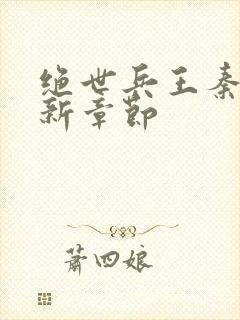 绝世兵王秦
新章节
萧四娘